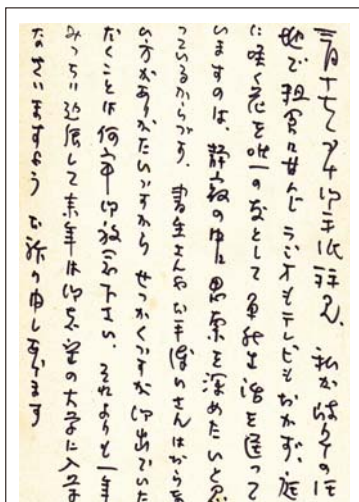 月十七日付御手紙拝見、私が
地で粗食に甘んじ ラジオもテレビもおかず、庭
に咲く花を唯一の友として 生活を送って
いますのは、静寂の中に思索を深めたいと思
っているからです。書生さんやお手伝いさんはむしろ
い方がありがたいですから せっかくですが御出でいた
だくことは何卒御放念下さい。それよりも一年
みっちり勉強して来年は御志望の大学に入学
なさいますよう お祈り申しあげます